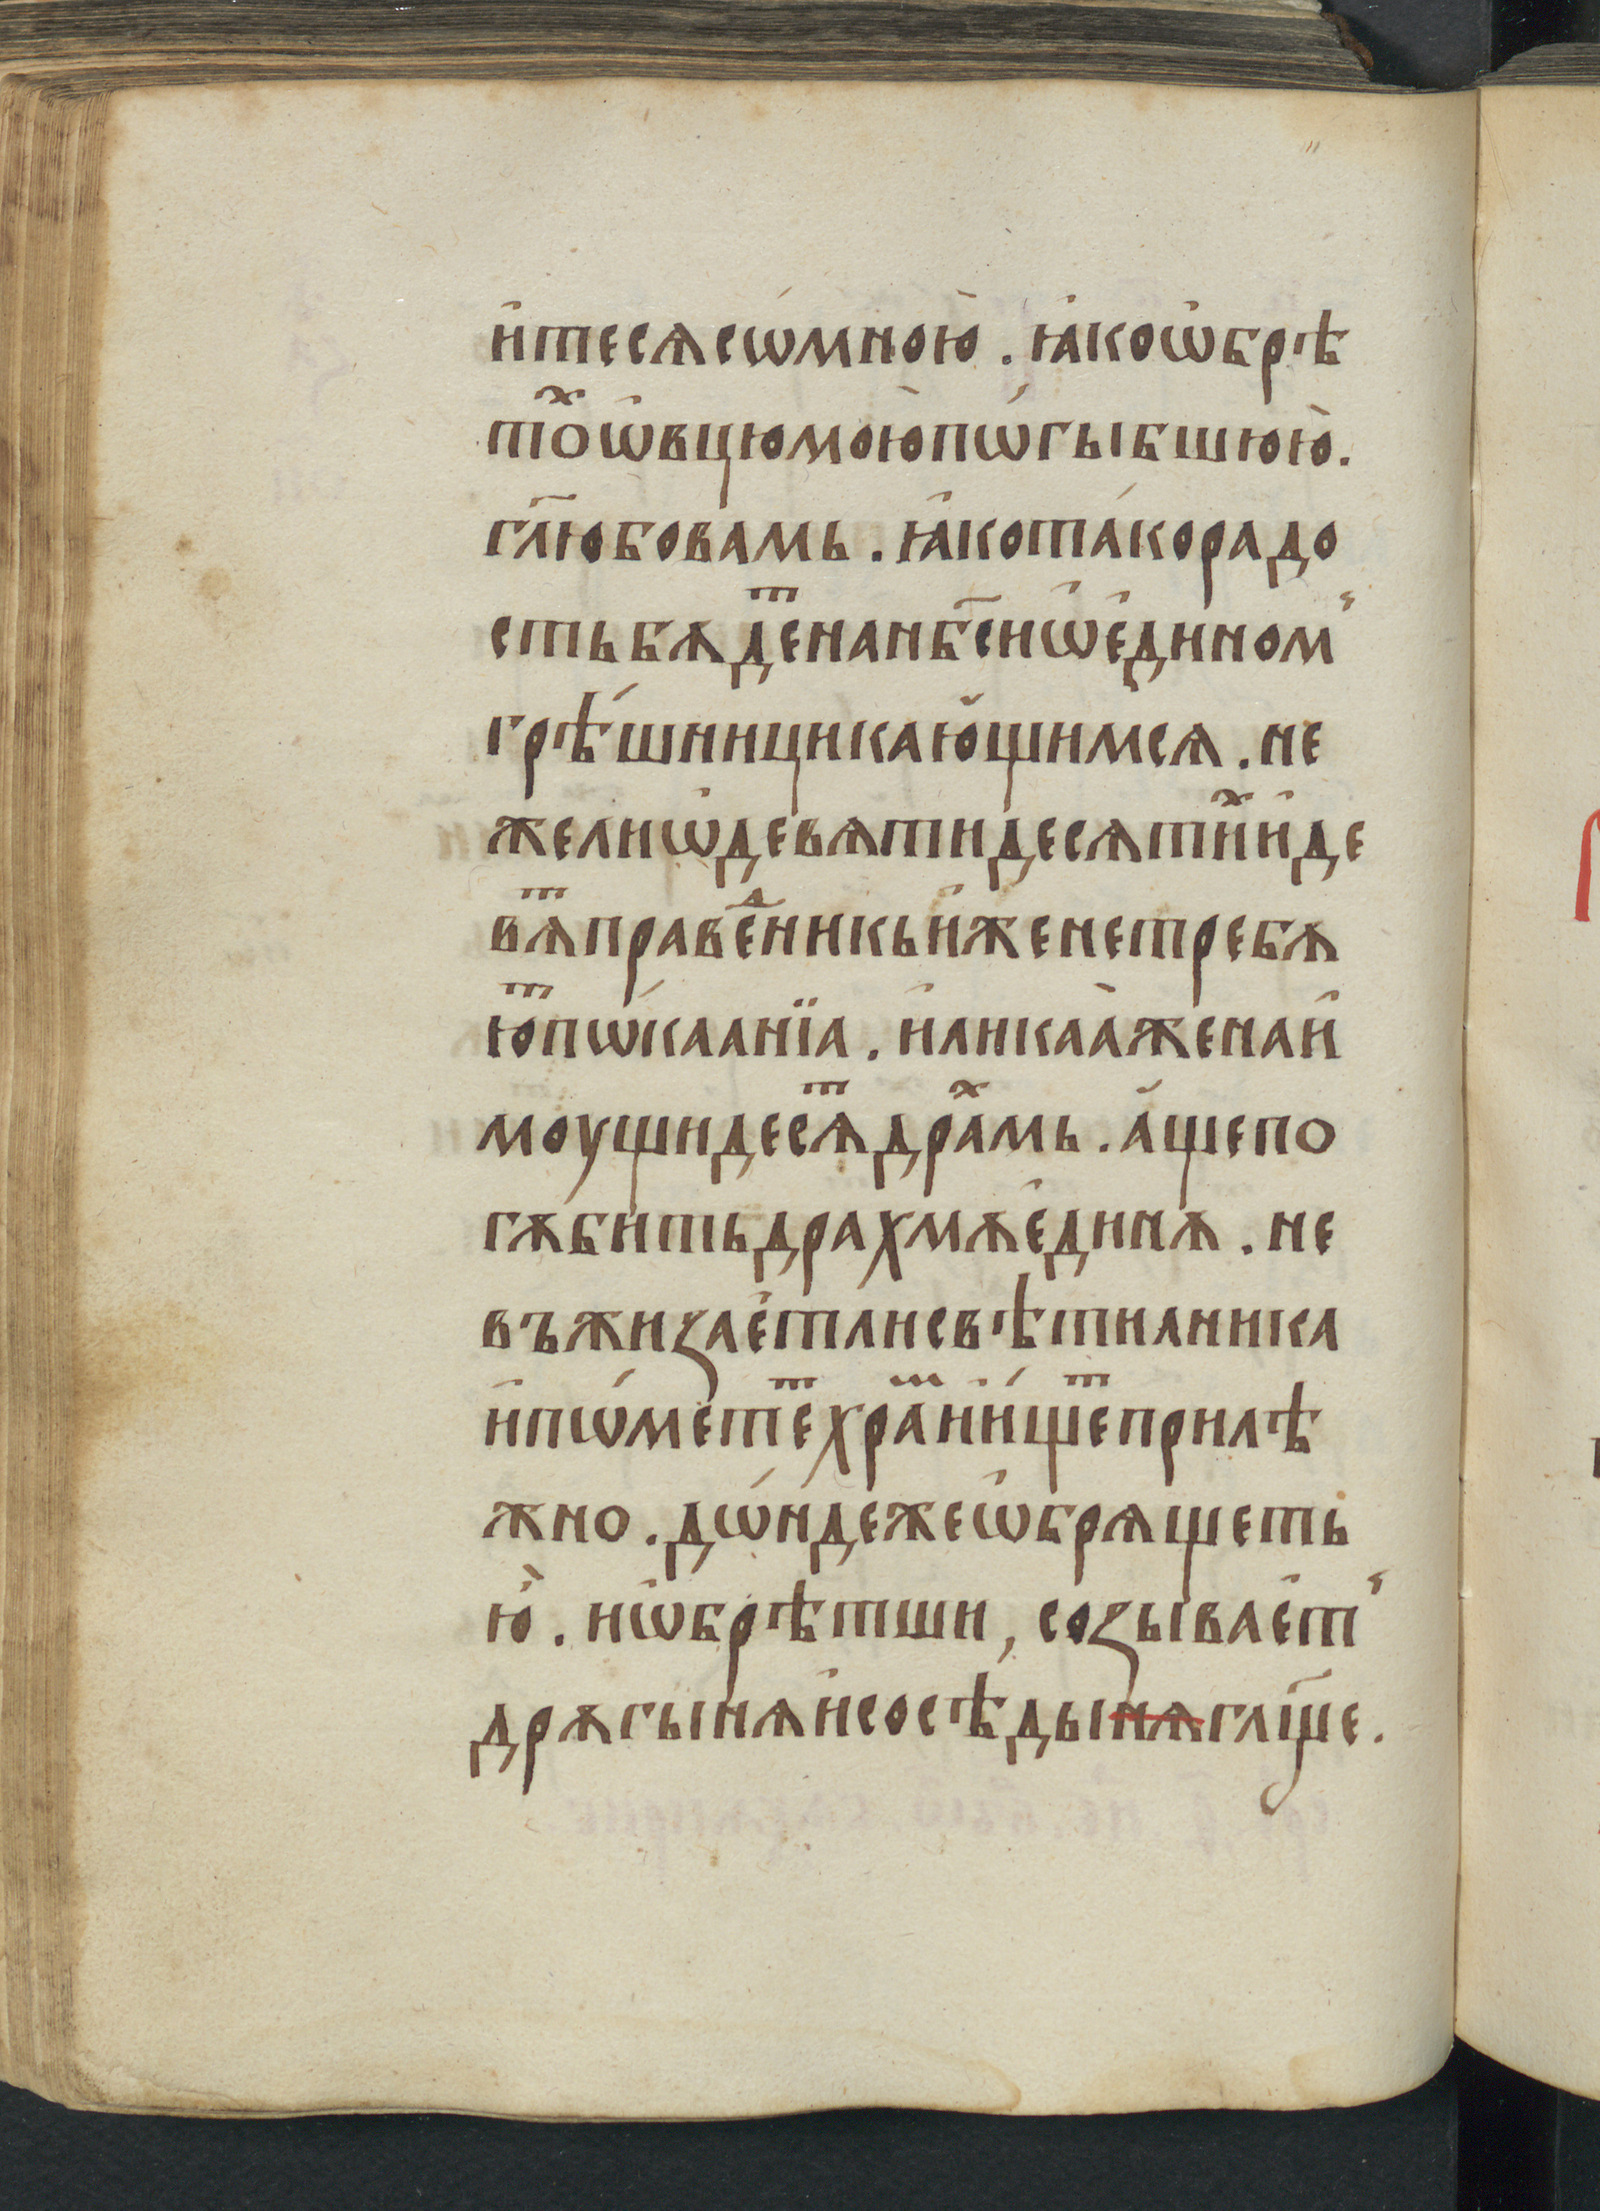 и҆тесѧсѡ́мною̀ . ꙗ҆коѡ҆брѣ
тоⷯѡ҆вцюмою̀пѡ́гыбшюю̀ .
гл҃юбовамь . ꙗ҆кота́корадо
стьбѫдеⷮнанб҃сиѡ҆є҆дином꙽
грѣ́шницикаю̆щимсѧ . не
желиѡ҆девѧтидесѧтиⷯи҆де
вѧⷮправеⷣникьи҆женетребѫ
юⷮпѡ́каанїа . и҆ликаа̀женаи҆
моущидесѧⷮдраⷯмь . а҆щепо
гѫбитьдрахмѫє҆динѫ . не
въжиꙁає҆тлисвѣтилника
и҆пѡ́мететⷮеⷯхра́минищеⷮприлѣ
жно . дѡ́ндежеѡ҆брѧщеть
ю̀ . иѡ҆брѣтши , соꙁыває҆т꙽
дрѫгынѧи҆сосѣдынѧгл҃ще .